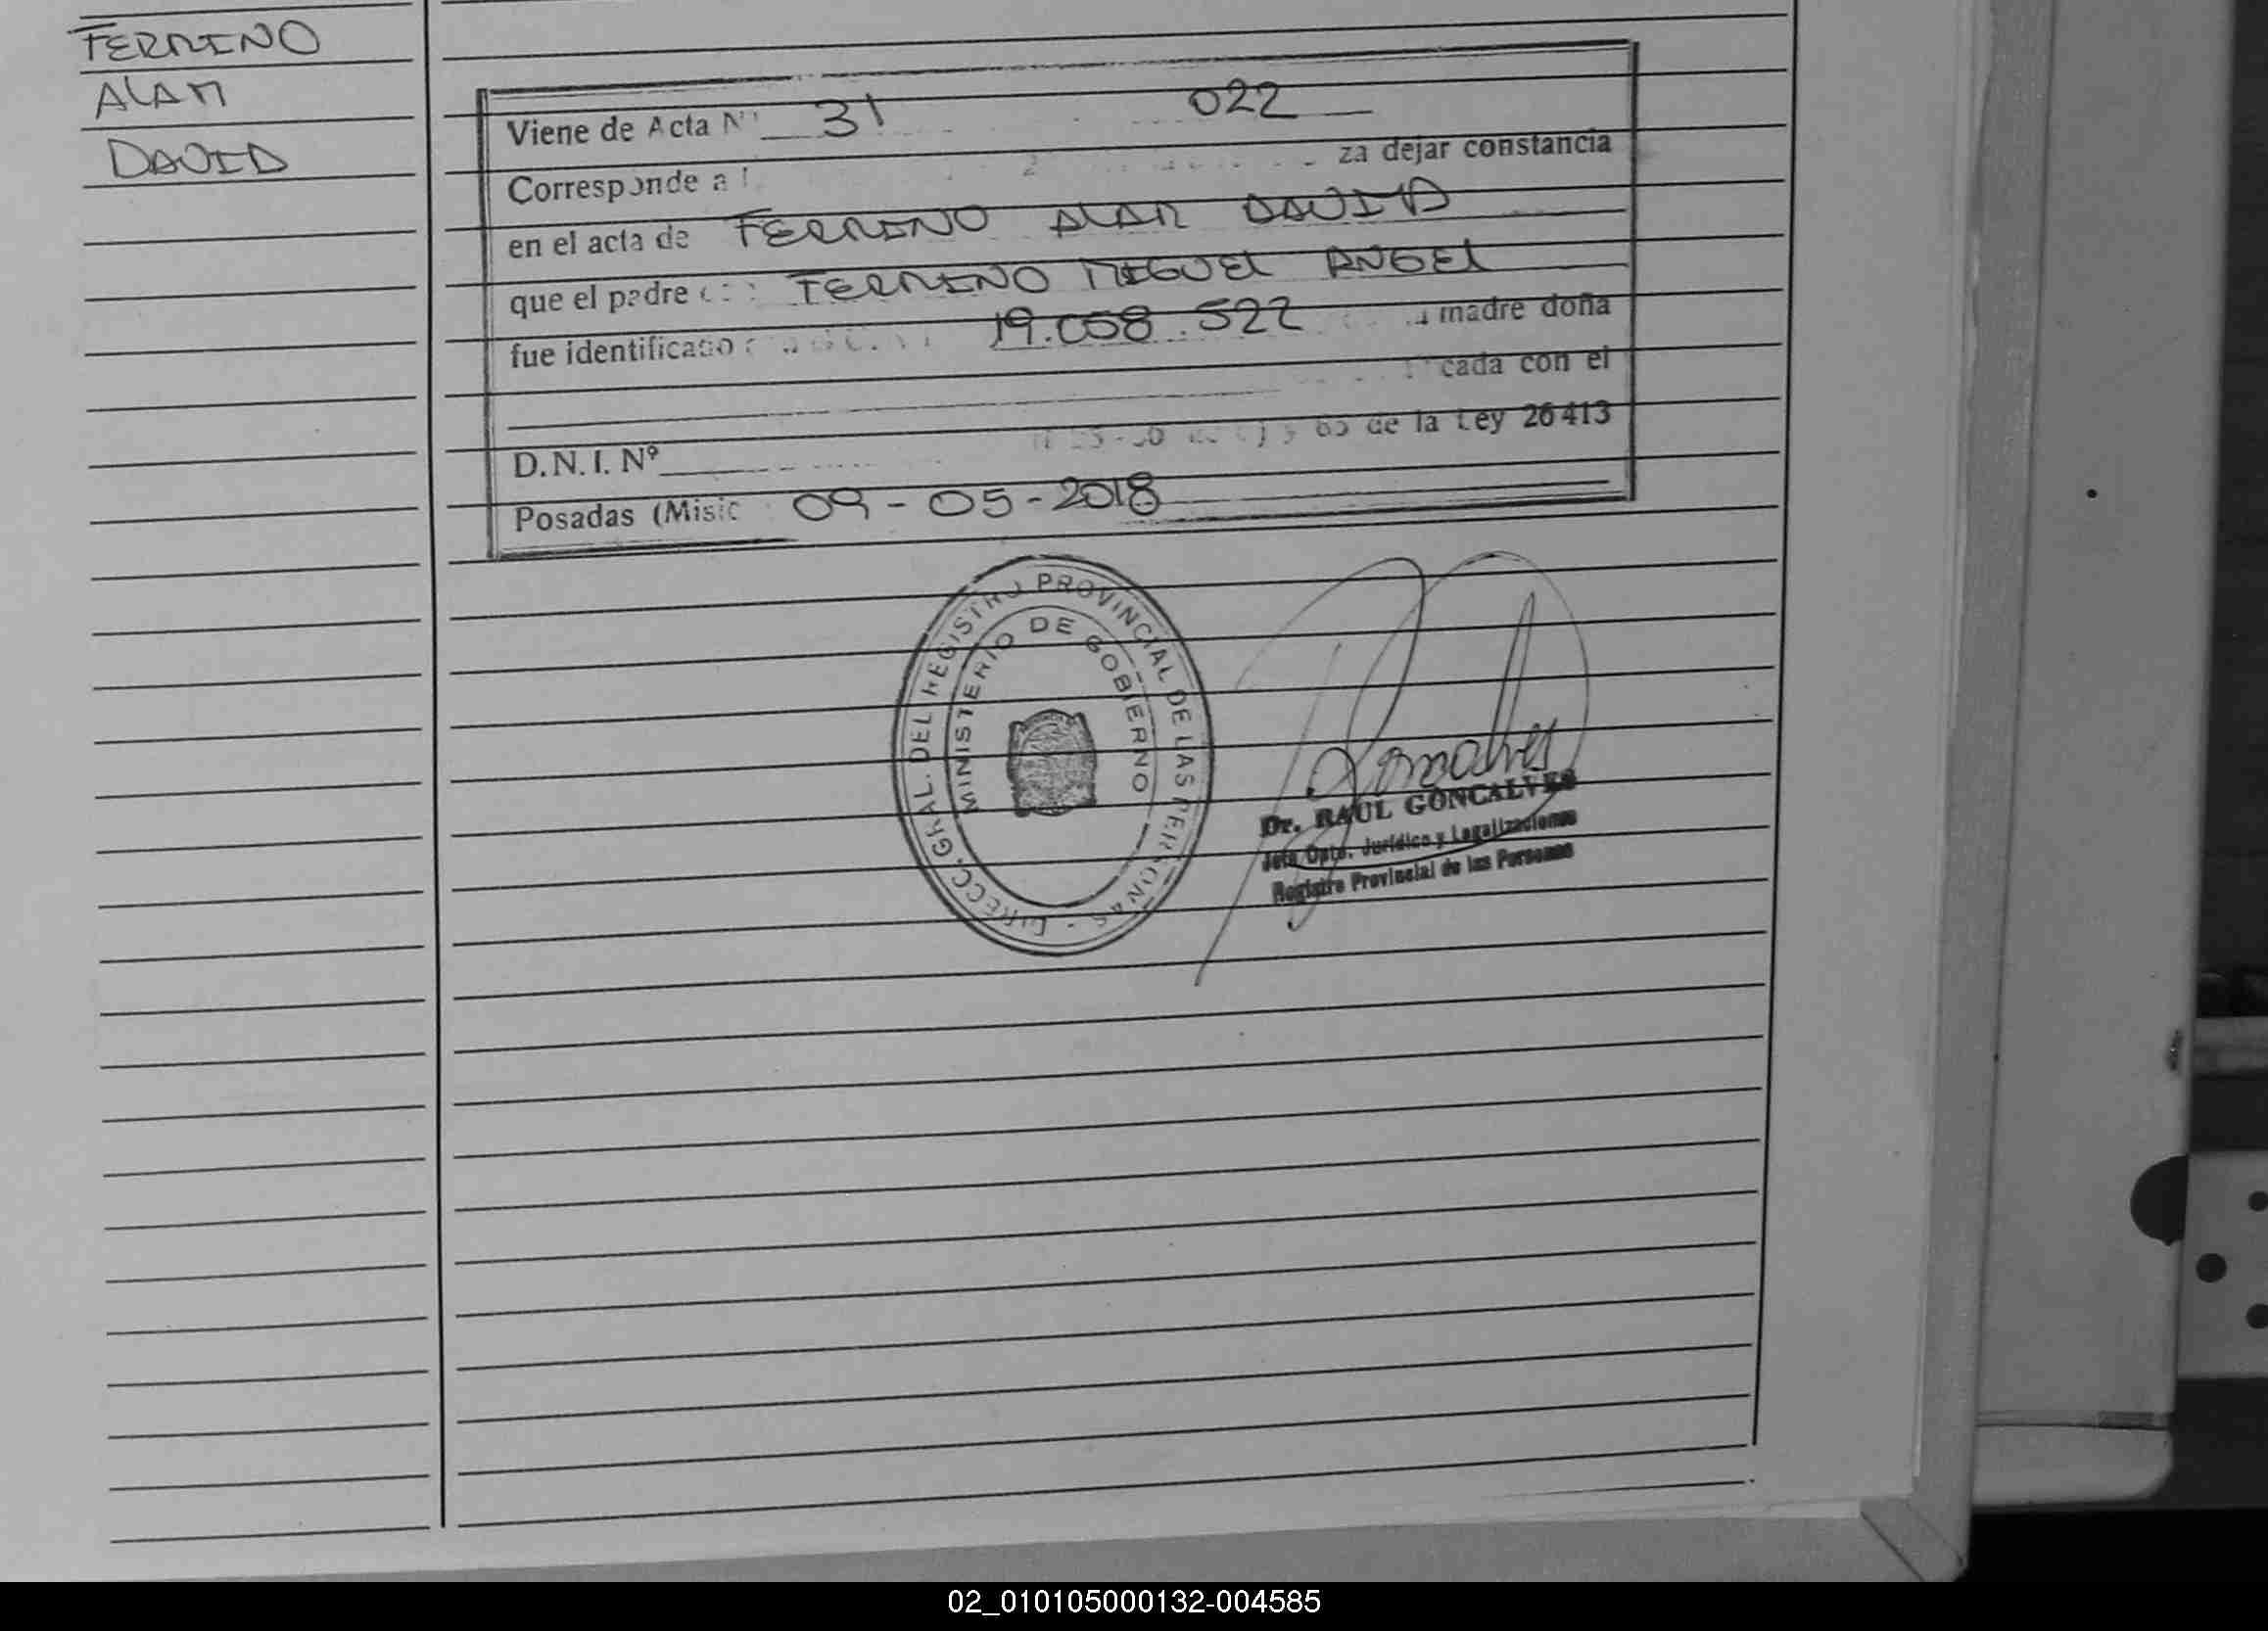 FERMINO
ALAM
DAVID
Viene de Acta Nº 31 022
Corresponde a za dejar constancia
en el acta de FERMINO ALAM DAVID
que el padre FERMINO MIGUEL ANGEL
fue identificado 19.058.522 madre doña
cada con el
D.N.I. Nº 65 de la Ley 26413
Posadas (Misic 09-05-2018
DIRECC. GRAL. DEL REGISTRO PROVINCIAL DE LAS PERSONAS -
MINISTERIO DE GOBIERNO
Goncalves
Dr. RAUL GONCALVES
Jefe Dpto. Jurídico y Legalizaciones
Registro Provincial de las Personas
02_010105000132-004585